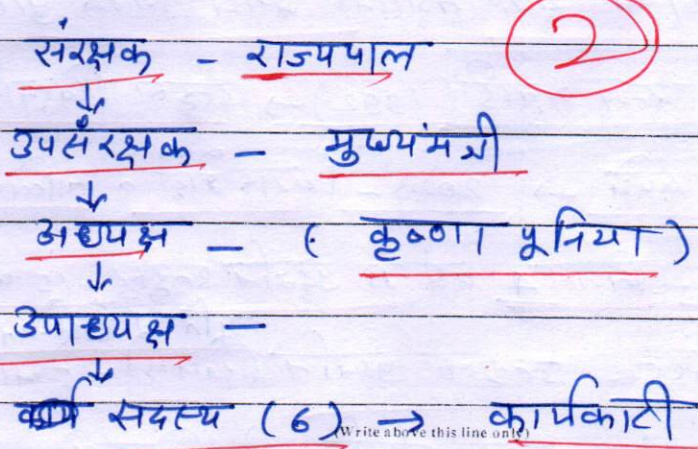 संरक्षक - राज्यपाल
2
↓
उपसंरक्षक - मुख्यमंत्री
↓
अध्यक्ष - ( कृष्णा पूनिया )
↓
उपाध्यक्ष -
↓
सदस्य (6) → कार्यकारी
(Write above this line only)